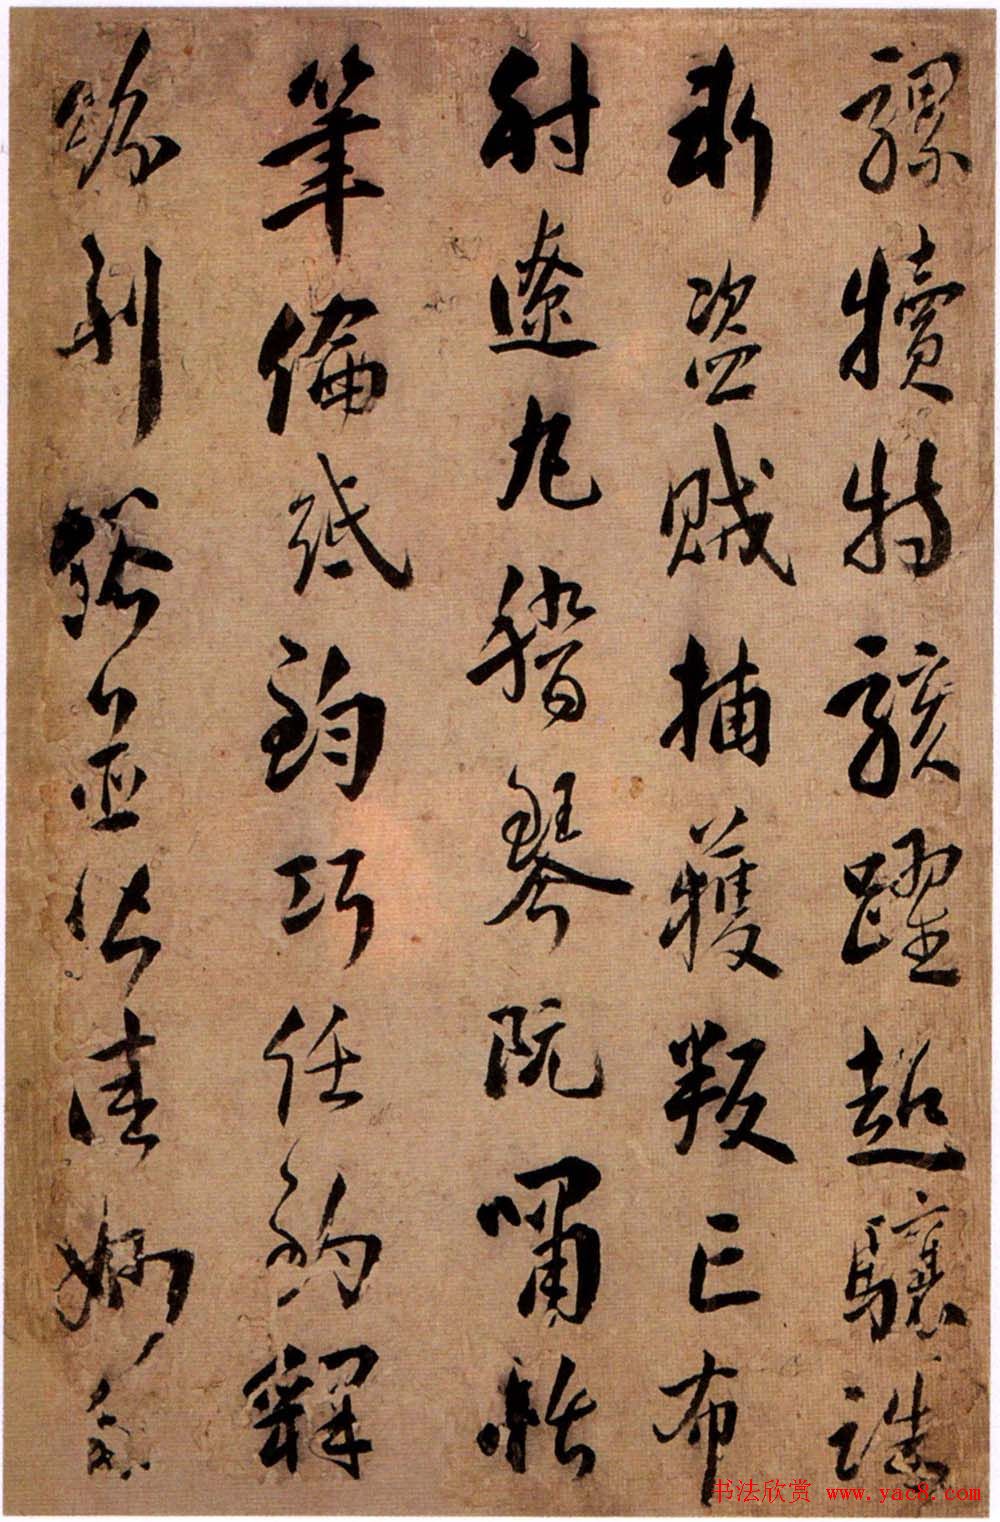 騾犢特駭躍超驤誅
斬盜賊捕獲叛亡布
射遼丸稽琴阮嘯恬
筆倫紙鈞巧任釣釋
紛利俗並皆佳妙
书法欣赏 www.yac8.com